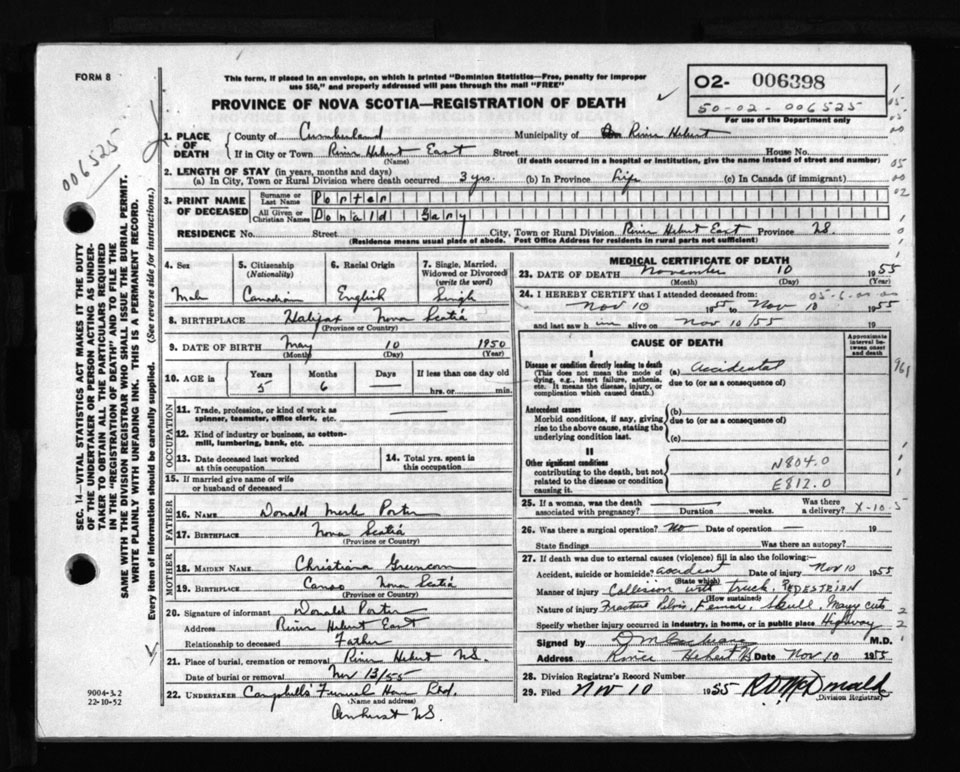 FORM 8
This form, if placed in an envelope, on which is printed "Dominion Statistics—Free, penalty for improper
use $50," and properly addressed will pass through the mail "FREE"
PROVINCE OF NOVA SCOTIA—REGISTRATION OF DEATH
02- 006398
50-02-006525
For use of the Department only
006525
SEC. 14—VITAL STATISTICS ACT MAKES IT THE DUTY
OF THE UNDERTAKER OR PERSON ACTING AS UNDER-
TAKER TO OBTAIN ALL THE PARTICULARS REQUIRED
IN THE "REGISTRATION OF DEATH" AND TO FILE THE
SAME WITH THE DIVISION REGISTRAR WHO SHALL ISSUE THE BURIAL PERMIT.
WRITE PLAINLY WITH UNFADING INK. THIS IS A PERMANENT RECORD.
Every item of information should be carefully supplied. (See reverse side for instructions.)
1. PLACE OF DEATH County of Cumberland Municipality of River Hebert
If in City or Town River Hebert East Street House No.
(Name) (If death occurred in a hospital or institution, give the name instead of street and number)
2. LENGTH OF STAY (in years, months and days)
(a) In City, Town or Rural Division where death occurred 3 yrs. (b) In Province Life (c) In Canada (if immigrant)
3. PRINT NAME OF DECEASED
Surname or Last Name Porter
All Given or Christian Names Donald Gary
RESIDENCE No. Street City, Town or Rural Division River Hebert East Province NS.
(Residence means usual place of abode. Post Office Address for residents in rural parts not sufficient)
4. Sex Male
5. Citizenship (Nationality) Canadian
6. Racial Origin English
7. Single, Married, Widowed or Divorced (write the word) Single
8. BIRTHPLACE Halifax Nova Scotia
(Province or Country)
9. DATE OF BIRTH May 10 1950
(Month) (Day) (Year)
10. AGE in Years 5 Months 6 Days — If less than one day old hrs. or min.
OCCUPATION
11. Trade, profession, or kind of work as spinner, teamster, office clerk, etc. —
12. Kind of industry or business, as cotton-mill, lumbering, bank, etc. —
13. Date deceased last worked at this occupation
14. Total yrs. spent in this occupation
15. If married give name of wife or husband of deceased
FATHER
16. NAME Donald Merle Porter
17. BIRTHPLACE Nova Scotia
(Province or Country)
MOTHER
18. MAIDEN NAME Christina
19. BIRTHPLACE Canso Nova Scotia
(Province or Country)
20. Signature of informant Donald Porter
Address River Hebert East
Relationship to deceased Father
21. Place of burial, cremation or removal River Hebert NS.
Date of burial or removal Nov 13/55
22. UNDERTAKER Campbell's Funeral Home Ltd.
(Name and address)
Amherst NS.
9004-3.2
22-10-52
MEDICAL CERTIFICATE OF DEATH
23. DATE OF DEATH November 10 1955
(Month) (Day) (Year)
24. I HEREBY CERTIFY that I attended deceased from:
Nov 10 1955 to Nov 10 1955
and last saw him alive on Nov 10/55 19
CAUSE OF DEATH
Approximate interval between onset and death
I
Disease or condition directly leading to death
(This does not mean the mode of dying, e.g., heart failure, asthenia, etc. It means the disease, injury, or complication which caused death.)
(a) Accidental
due to (or as a consequence of)
Antecedent causes
Morbid conditions, if any, giving rise to the above cause, stating the underlying condition last.
(b)
due to (or as a consequence of)
(c)
II
Other significant conditions
contributing to the death, but not related to the disease or condition causing it.
N804.0
E812.0
25. If a woman, was the death associated with pregnancy? Duration weeks. Was there a delivery?
X-10-5
26. Was there a surgical operation? No Date of operation — 19
State findings Was there an autopsy?
27. If death was due to external causes (violence) fill in also the following:—
Accident, suicide or homicide? accident Date of injury Nov 10 1955
(State which)
Manner of injury Collision with truck, PEDESTRIAN
(How sustained)
Nature of injury Fracture Pelvis, Femur, Skull, Many cuts
Specify whether injury occurred in industry, in home, or in public place Highway
Signed by D M Cochrane M.D.
Address River Hebert NS Date Nov 10 1955
28. Division Registrar's Record Number
29. Filed Nov 10 1955 R D McDonald
Division Registrar